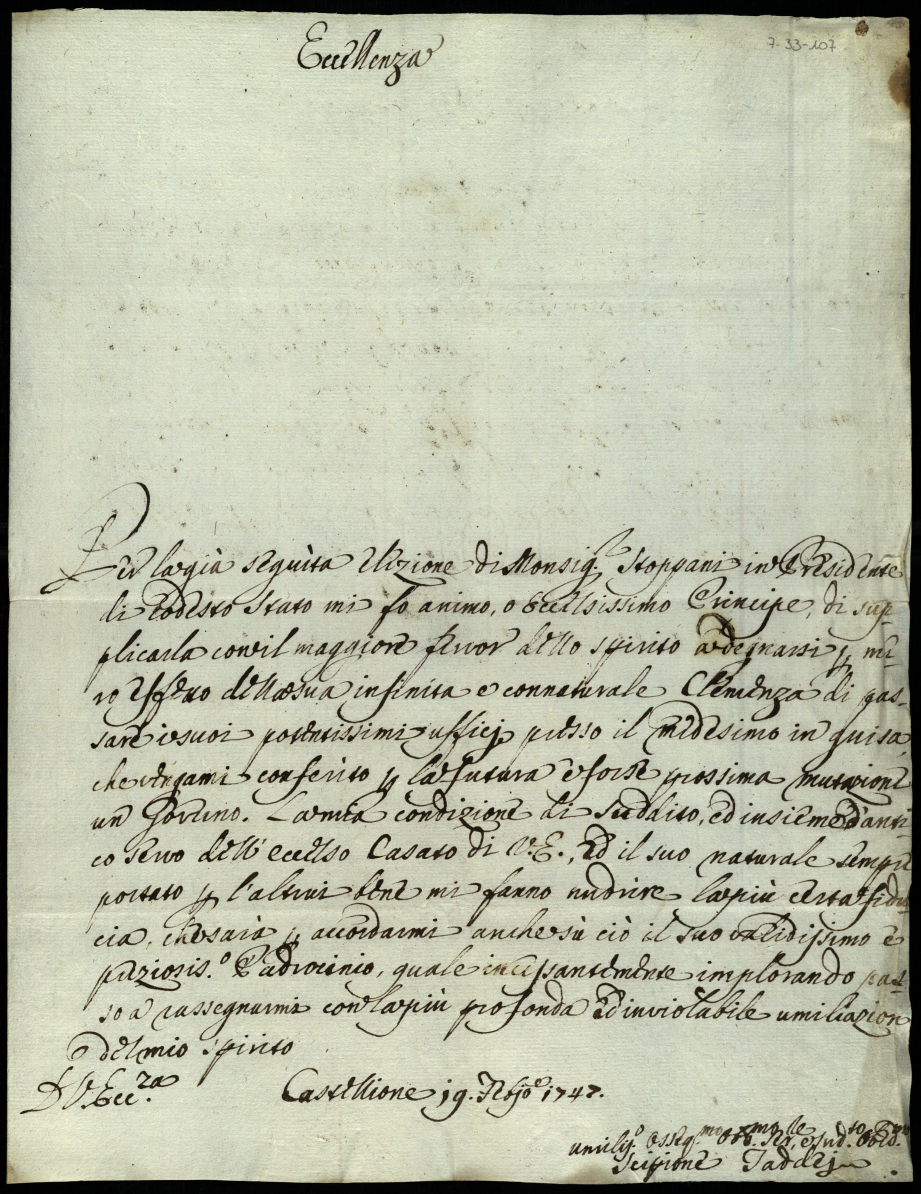 7-33-107
Eccellenza
Per la già seguita Elezione di Monsig.r Stoppani in Presidente
di codesto Stato mi fò animo, o Eccelsissimo Principe, di sup-
plicarla con il maggiore fervor dello spirito a degnarsi p mi-
ro effetto della sua infinita e connaturale Clemenza di pas-
sare i suoi potentissimi ufficj presso il medesimo in guisa,
che vengami conferito p la futura e forse prossima mutazione
un Governo. La mia condizione di Suddito, ed insieme d'anti-
co servo dell'eccelso Casato di V.E., Ed il suo naturale sempre
portato p l'altrui bene mi fanno nudrire la più certa fidu-
cia, che sarà p accordarmi anche sù ciò il suo validissimo e
preziosis.o Padrocinio, quale incessantemente implorando pas-
so a rassegnarmi con la più profonda ed inviolabile umiliazion
e del mio spirito
D. V. Ecc.za
Castellione 19. 1747.
umilis.o osseq.mo e Sud.to
Scipione Taddej